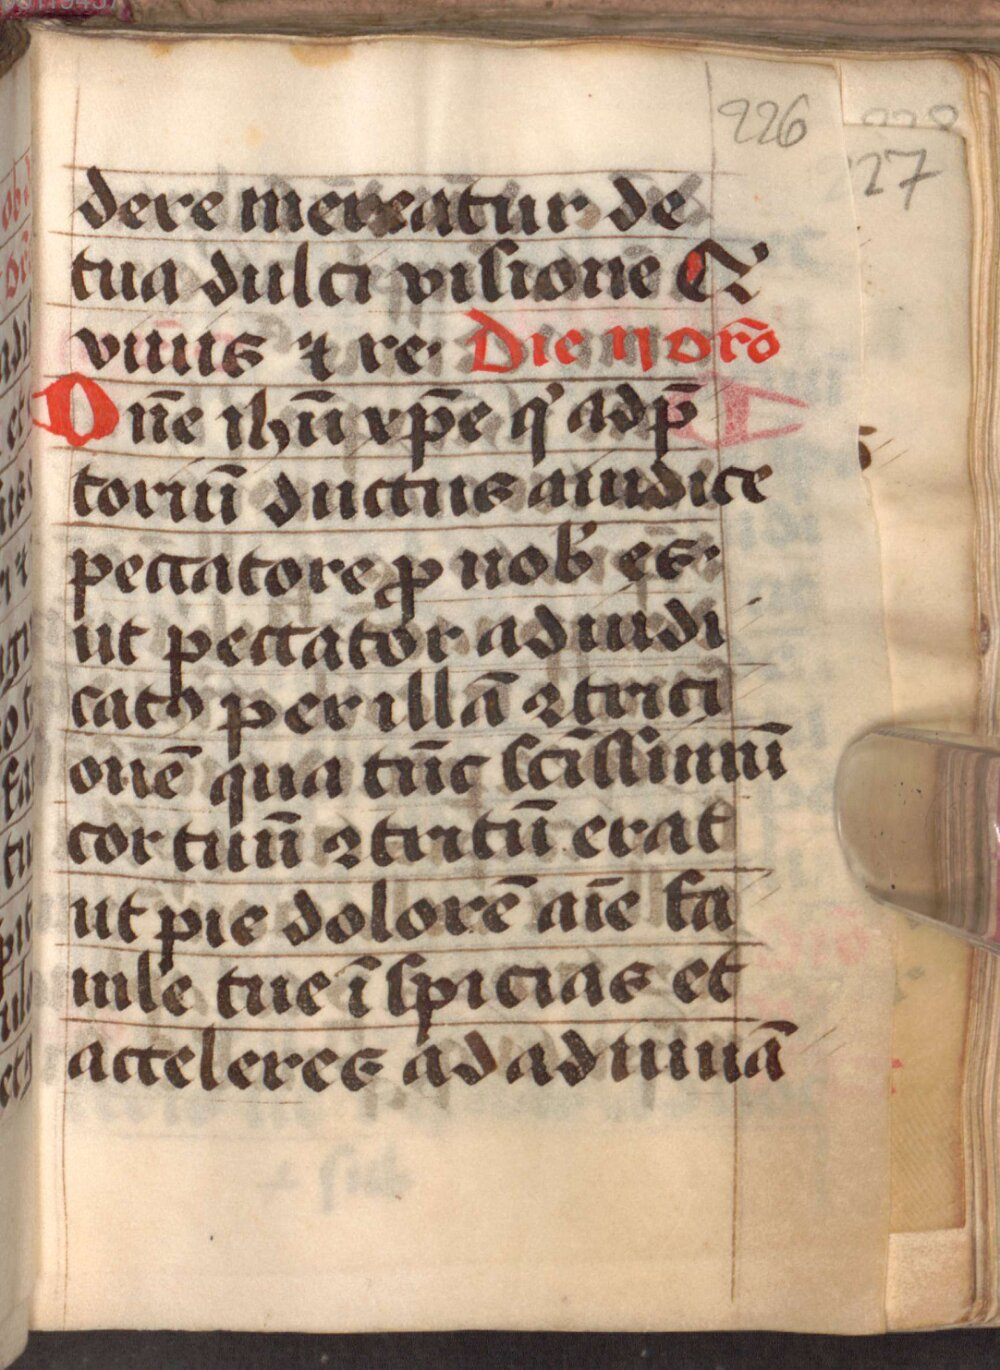 226
27
dere mereatur de
tua dulci visione Q
viuis ⁊ re· Die ij orō
Dn̄e ihū xp̄e q' ad p̄
toriū ductus a iudice
peccatore ꝓ nob' es·
ut peccator adiudi
catꝰ per illā ꝯtrici
onē qua tūc scīssimū
cor tuū ꝯtritū erat
ut pie dolorē aīe fa
mle tue ī spicias et
acceleres ad adiuuā